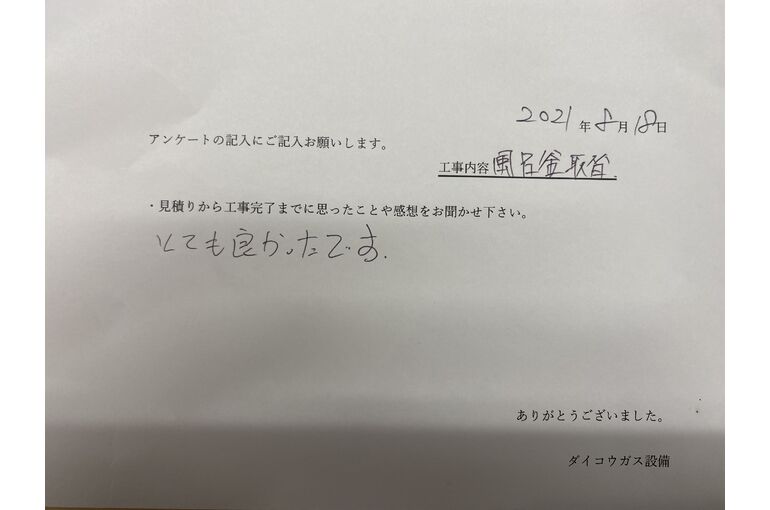 2021年8月18日
アンケートの記入にご記入お願いします。
工事内容 風呂釜取替.
・見積りから工事完了までに思ったことや感想をお聞かせ下さい。
とても良かったです.
ありがとうございました。
ダイコウガス設備